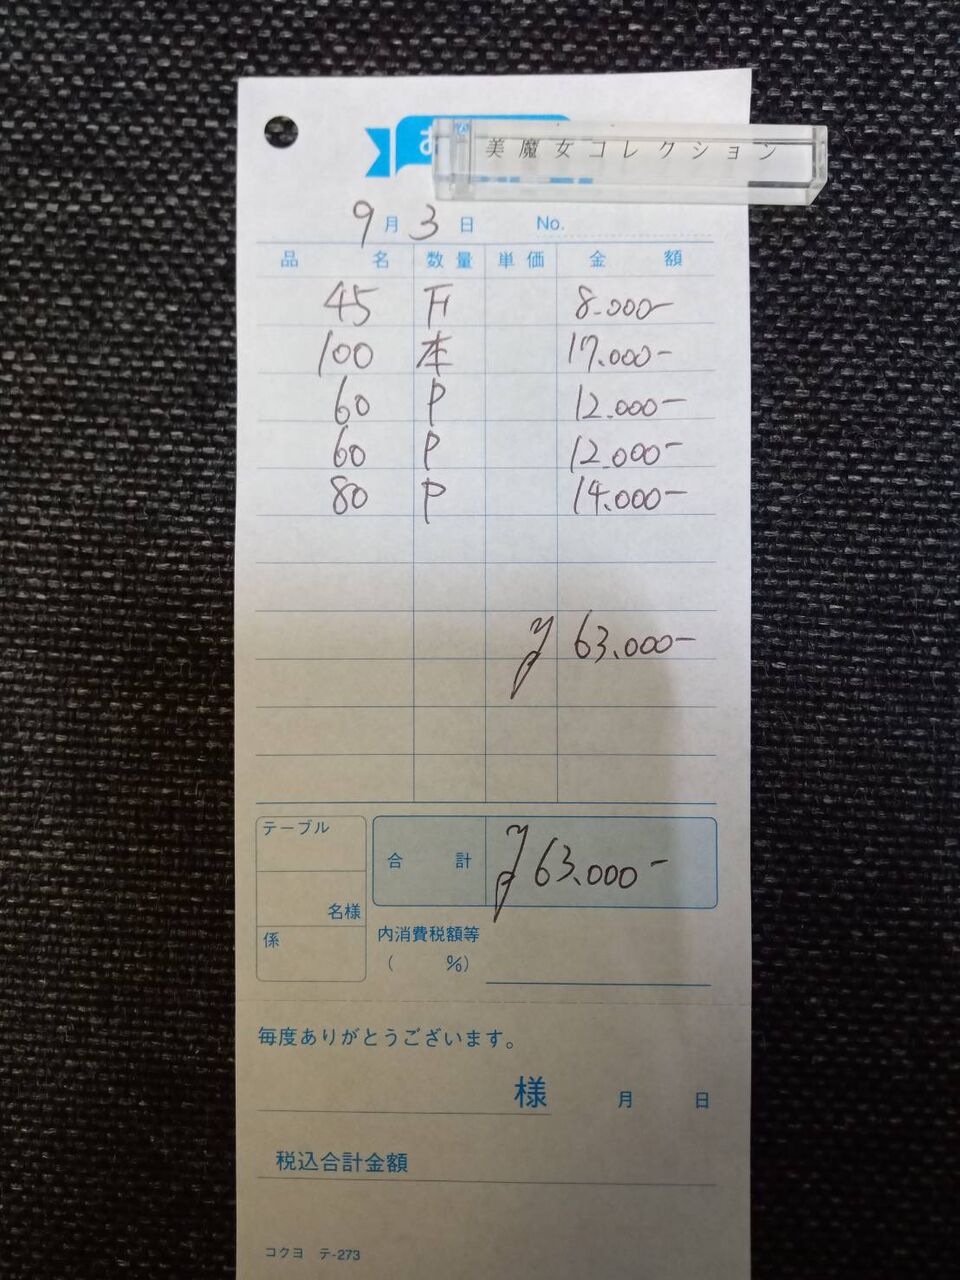 お
美魔女コレクション
9月3日 No.
品名 数量 単価 金額
45 F 8.000-
100 本 17.000-
60 P 12.000-
60 P 12.000-
80 P 14.000-
¥63.000-
テーブル
名様
係
合計 ¥63.000-
内消費税額等
( %)
毎度ありがとうございます。
様 月 日
税込合計金額
コクヨ テ-273